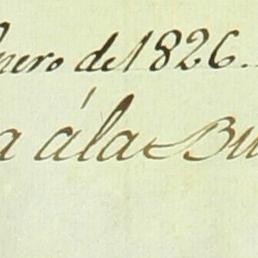 nero de 1826.
a á la Bu